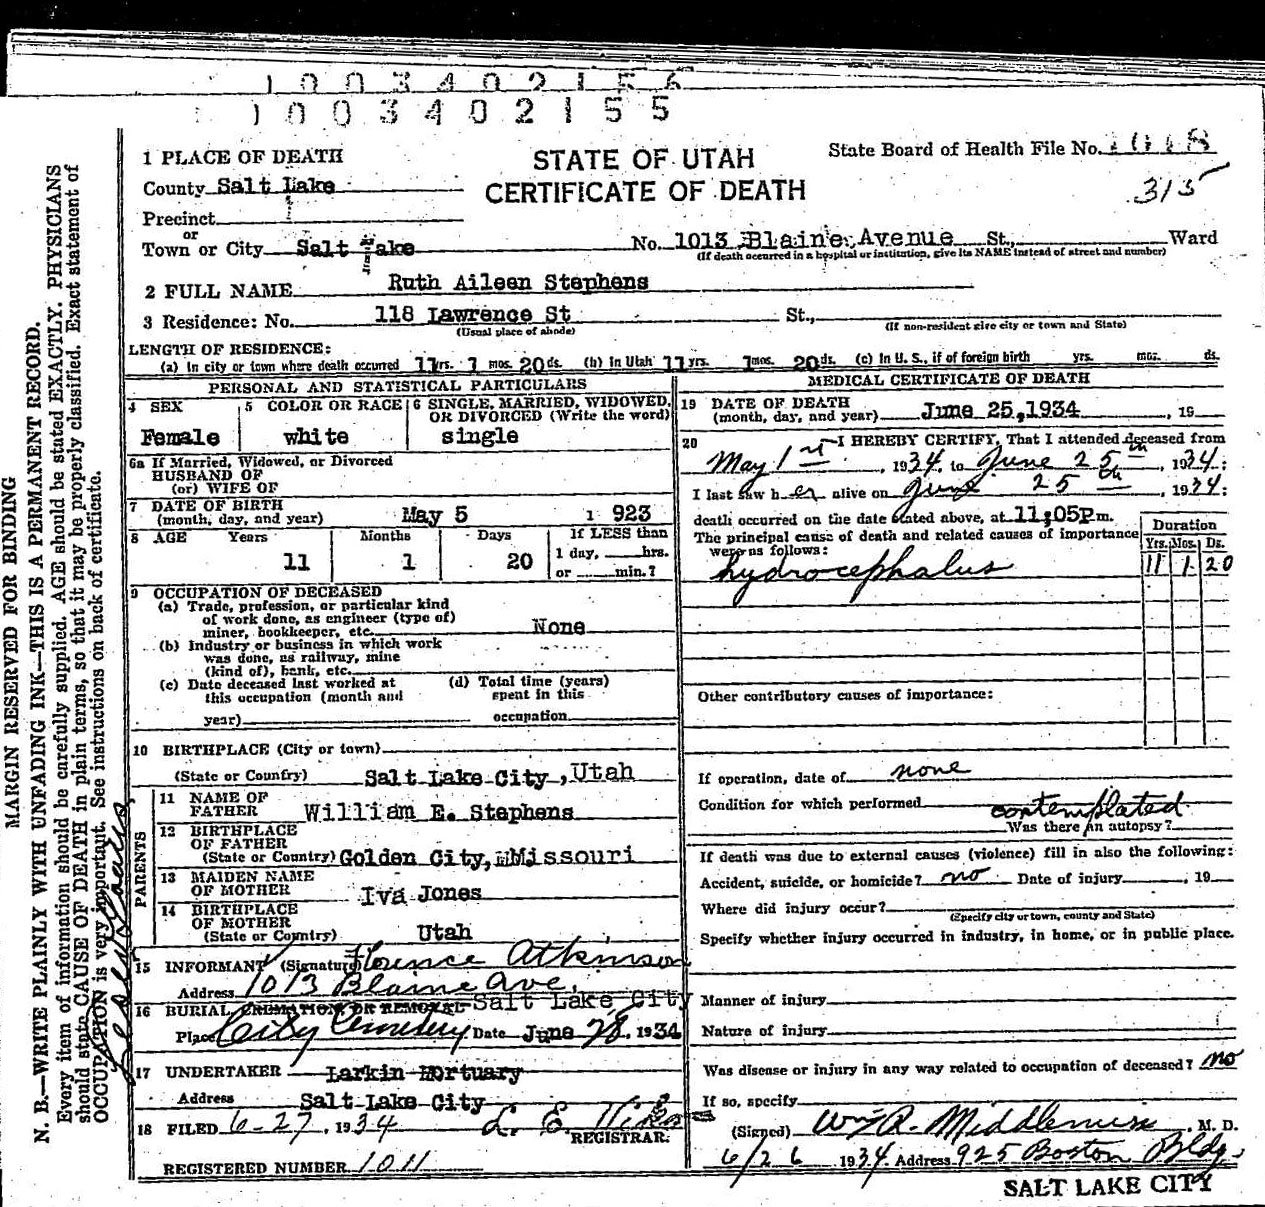 1003402156
1003402155
1 PLACE OF DEATH
County Salt Lake
Precinct
or
Town or City Salt Lake
STATE OF UTAH
CERTIFICATE OF DEATH
State Board of Health File No.
315
No. 1013 Blaine Avenue St., Ward
(If death occurred in a hospital or institution, give its NAME instead of street and number)
2 FULL NAME Ruth Aileen Stephens
3 Residence: No. 118 Lawrence St St.,
(Usual place of abode) (If non-resident give city or town and State)
LENGTH OF RESIDENCE:
(a) In city or town where death occurred 11 yrs. 1 mos. 20 ds. (b) In Utah 11 yrs. 1 mos. 20 ds. (c) In U. S., if of foreign birth yrs. mos. ds.
PERSONAL AND STATISTICAL PARTICULARS
4 SEX 5 COLOR OR RACE 6 SINGLE, MARRIED, WIDOWED, OR DIVORCED (Write the word)
Female white single
6a If Married, Widowed, or Divorced
HUSBAND OF
(or) WIFE OF
7 DATE OF BIRTH
(month, day, and year) May 5 1923
8 AGE Years Months Days If LESS than
1 day, hrs.
11 1 20 or min.?
9 OCCUPATION OF DECEASED
(a) Trade, profession, or particular kind
of work done, as engineer (type of)
miner, bookkeeper, etc. None
(b) Industry or business in which work
was done, as railway, mine
(kind of), bank, etc.
(c) Date deceased last worked at (d) Total time (years)
this occupation (month and spent in this
year) occupation
10 BIRTHPLACE (City or town)
(State or Country) Salt Lake City, Utah
PARENTS
11 NAME OF
FATHER William E. Stephens
12 BIRTHPLACE
OF FATHER
(State or Country) Golden City, Missouri
13 MAIDEN NAME
OF MOTHER Iva Jones
14 BIRTHPLACE
OF MOTHER
(State or Country) Utah
15 INFORMANT (Signature) Florence Atkinson
Address 1013 Blaine Ave.
16 BURIAL, CREMATION OR REMOVAL Salt Lake City
Place City Cemetery Date June 28, 1934
17 UNDERTAKER Larkin Mortuary
Address Salt Lake City
18 FILED 6-27, 1934
REGISTRAR.
REGISTERED NUMBER 1011
MEDICAL CERTIFICATE OF DEATH
19 DATE OF DEATH
(month, day, and year) June 25, 1934, 19
20 I HEREBY CERTIFY, That I attended deceased from
May 1st, 1934, to June 25th, 1934:
I last saw her alive on June 25th, 1934:
death occurred on the date stated above, at 11:05P m.
The principal cause of death and related causes of importance
were as follows:
Duration
Yrs. Mos. Ds.
hydrocephalus 11 1 20
Other contributory causes of importance:
If operation, date of none
Condition for which performed contemplated
Was there an autopsy?
If death was due to external causes (violence) fill in also the following:
Accident, suicide, or homicide? no Date of injury , 19
Where did injury occur?
(Specify city or town, county and State)
Specify whether injury occurred in industry, in home, or in public place.
Manner of injury
Nature of injury
Was disease or injury in any way related to occupation of deceased? no
If so, specify
(Signed) Wm R. Middlemiss, M. D.
6/26 1934 Address 925 Boston Bldg.
SALT LAKE CITY
MARGIN RESERVED FOR BINDING
N. B.—WRITE PLAINLY WITH UNFADING INK—THIS IS A PERMANENT RECORD.
Every item of information should be carefully supplied. AGE should be stated EXACTLY. PHYSICIANS
should state CAUSE OF DEATH in plain terms, so that it may be properly classified. Exact statement of
OCCUPATION is very important. See instructions on back of certificate.